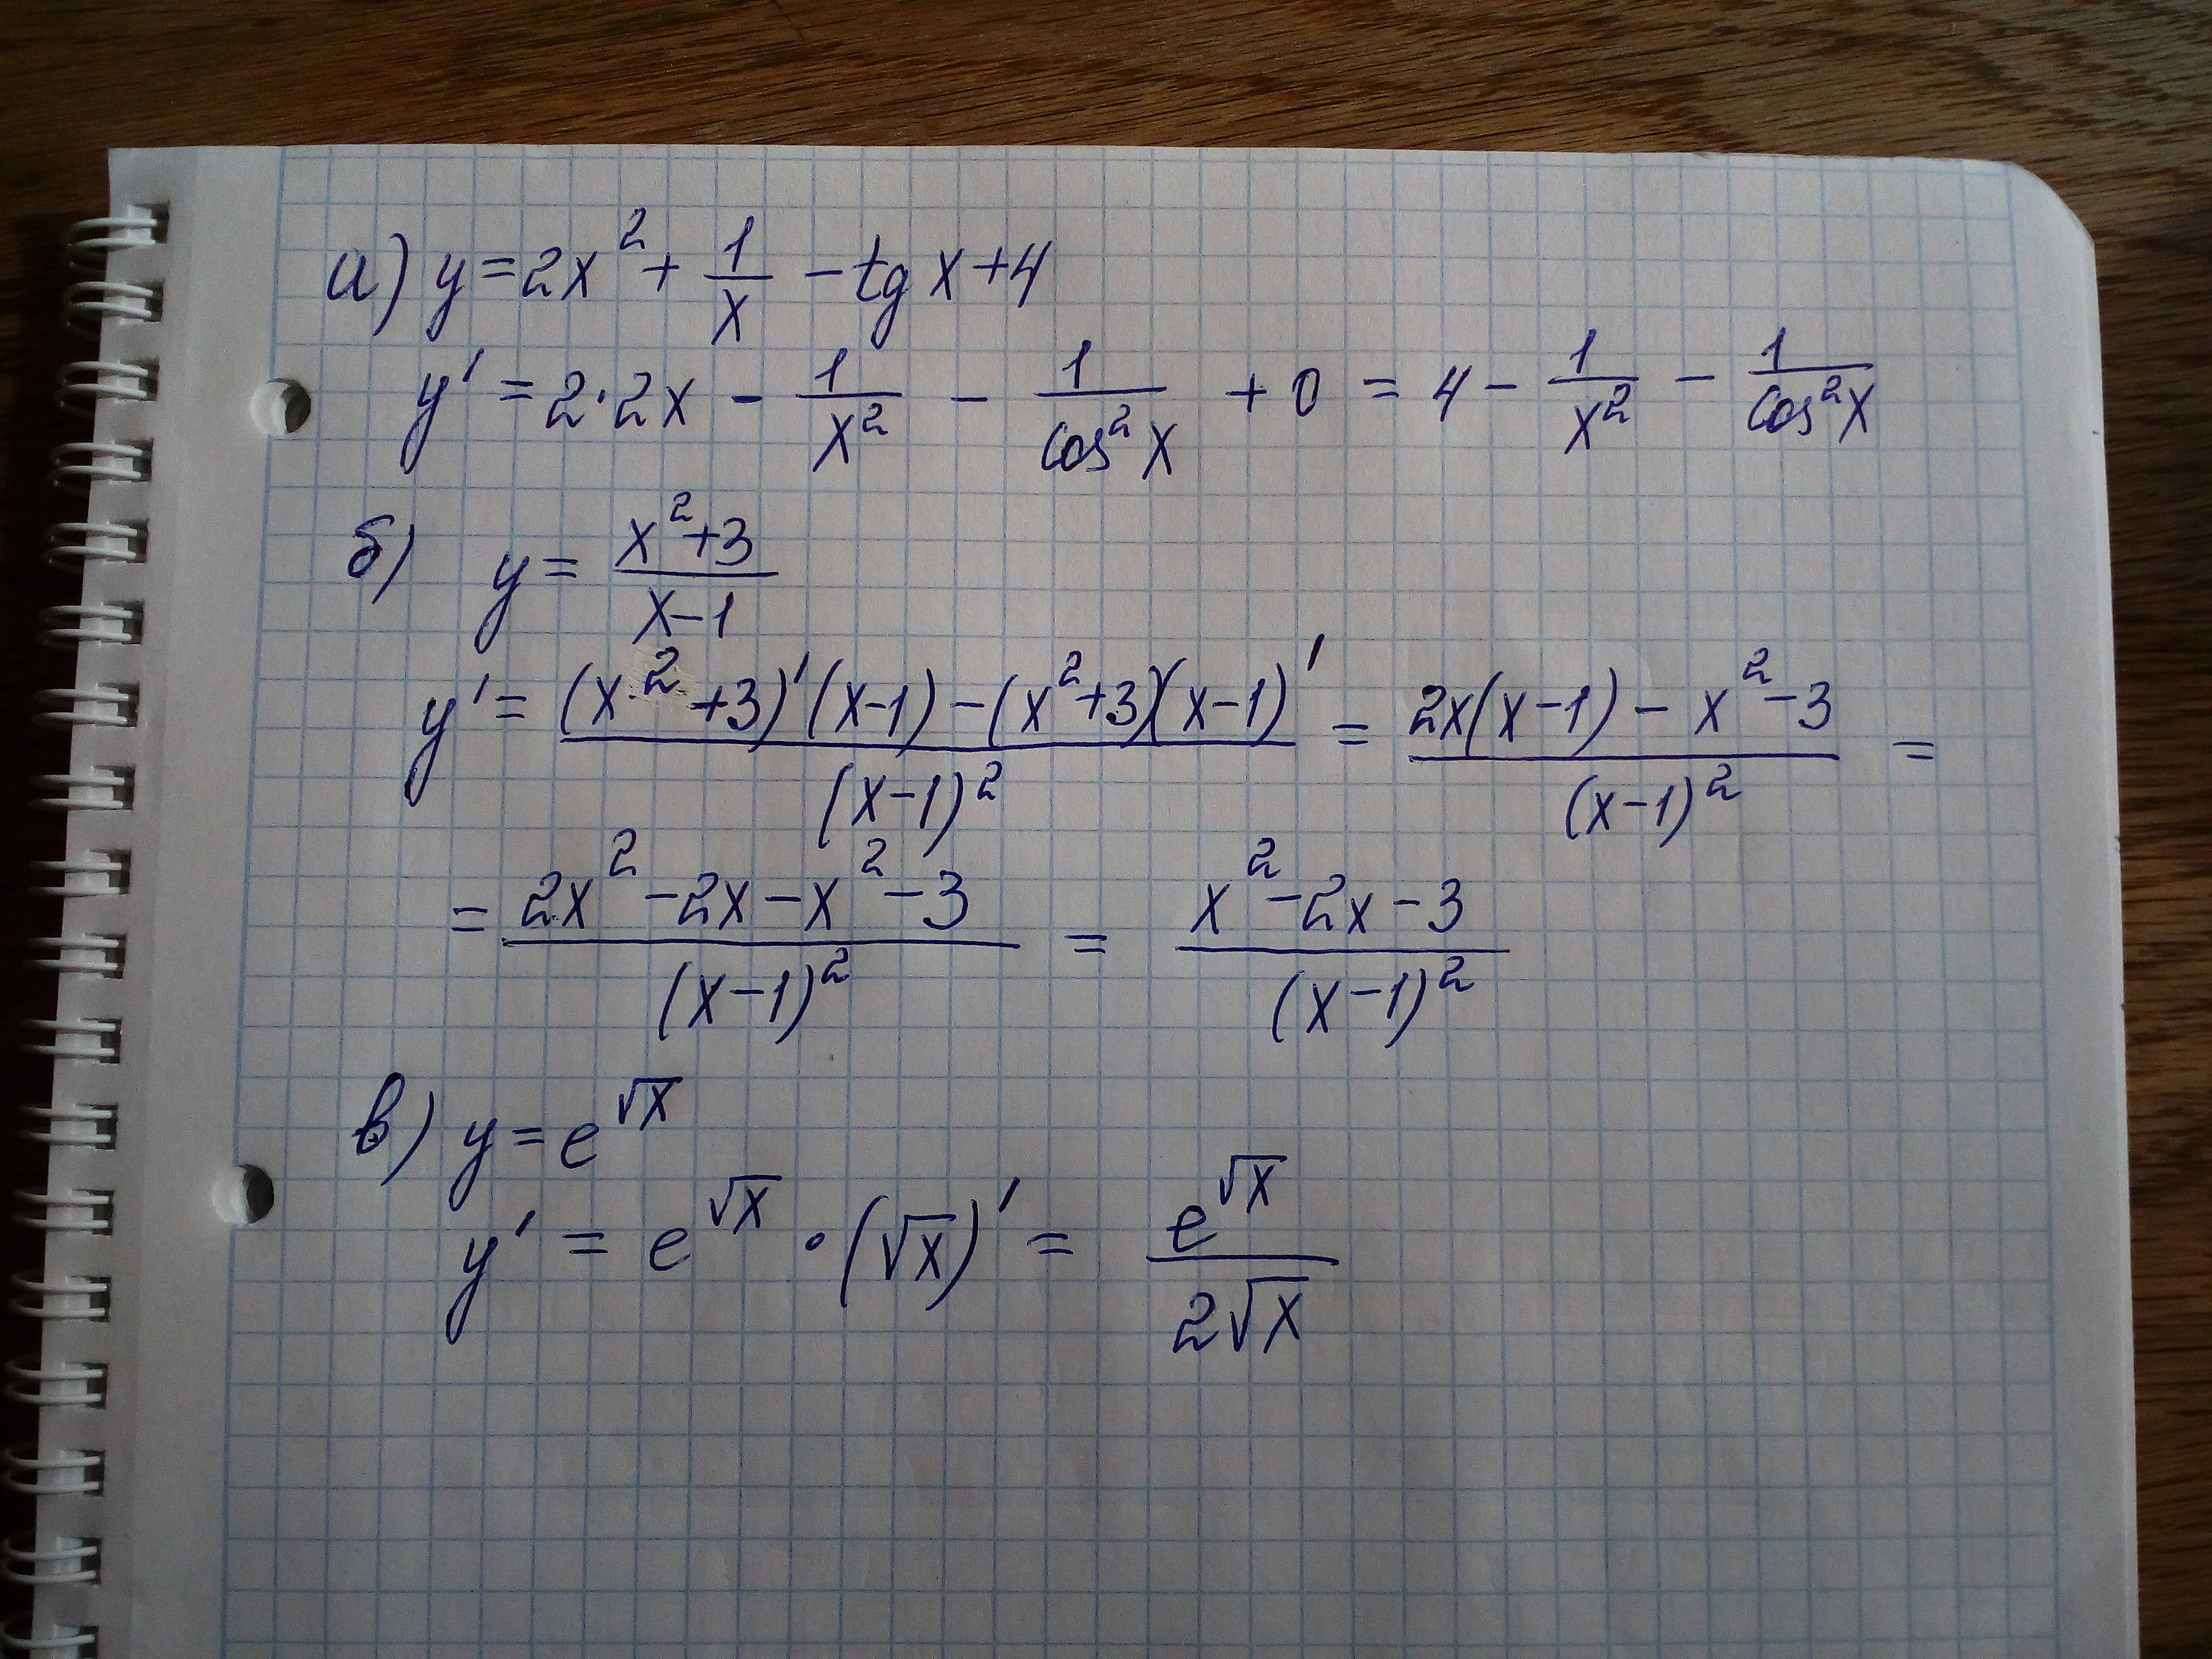 а) y = 2x² + 1/x - tg x + 4
y' = 2·2x - 1/x² - 1/cos²x + 0 = 4 - 1/x² - 1/cos²x
б) y = (x²+3)/(x-1)
y' = ((x²+3)'(x-1) - (x²+3)(x-1)')/(x-1)² = (2x(x-1) - x² - 3)/(x-1)² =
= (2x² - 2x - x² - 3)/(x-1)² = (x² - 2x - 3)/(x-1)²
в) y = e^√x
y' = e^√x · (√x)' = e^√x/(2√x)